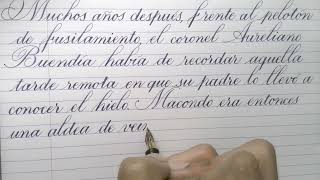 Muchos años después, frente al pelotón
de fusilamiento, el coronel Aureliano
Buendía había de recordar aquella
tarde remota en que su padre lo llevó a
conocer el hielo. Macondo era entonces
una aldea de vein